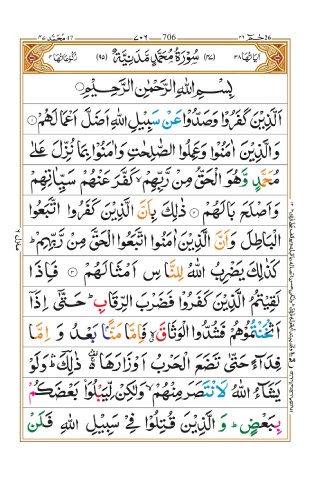 محمد ٤٧ ٧٠٦ 706 حٰم ٢٦
اٰیاتها ٣٨ (٤٧) سُوۡرَةُ مُحَمَّدٍ مَّدَنِيَّةٌ (٩٥) رُكُوۡعَاتُهَا ٤
بِسۡمِ اللهِ الرَّحۡمٰنِ الرَّحِيۡمِ
اَلَّذِيۡنَ كَفَرُوۡا وَصَدُّوۡا عَنۡ سَبِيۡلِ اللهِ اَضَلَّ اَعۡمَالَهُمۡ ۝۱
وَالَّذِيۡنَ اٰمَنُوۡا وَعَمِلُوا الصّٰلِحٰتِ وَاٰمَنُوۡا بِمَا نُزِّلَ عَلٰى
مُحَمَّدٍ وَّهُوَ الۡحَقُّ مِنۡ رَّبِّهِمۡ ۙ كَفَّرَ عَنۡهُمۡ سَيِّاٰتِهِمۡ
وَاَصۡلَحَ بَالَهُمۡ ۝۲ ذٰلِكَ بِاَنَّ الَّذِيۡنَ كَفَرُوا اتَّبَعُوا
الۡبَاطِلَ وَاَنَّ الَّذِيۡنَ اٰمَنُوا اتَّبَعُوا الۡحَقَّ مِنۡ رَّبِّهِمۡ ؕ
كَذٰلِكَ يَضۡرِبُ اللهُ لِلنَّاسِ اَمۡثَالَهُمۡ ۝۳ فَاِذَا
لَقِيۡتُمُ الَّذِيۡنَ كَفَرُوۡا فَضَرۡبَ الرِّقَابِ ؕ حَتّٰٓى اِذَاۤ
اَثۡخَنۡتُمُوۡهُمۡ فَشُدُّوا الۡوَثَاقَ ۙ فَاِمَّا مَنًّۢا بَعۡدُ وَ اِمَّا
فِدَآءً حَتّٰى تَضَعَ الۡحَرۡبُ اَوۡزَارَهَا ۛ۬ۚ ذٰلِكَ ۛؕ وَلَوۡ
يَشَآءُ اللهُ لَانۡتَصَرَ مِنۡهُمۡ ۙ وَلٰكِنۡ لِّيَبۡلُوَا۟ بَعۡضَكُمۡ
بِبَعۡضٍ ؕ وَ الَّذِيۡنَ قُتِلُوۡا فِىۡ سَبِيۡلِ اللهِ فَلَنۡ